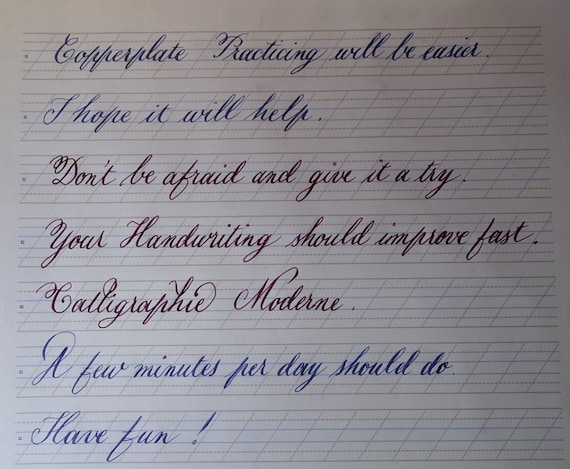 Copperplate Practicing will be easier.
I hope it will help.
Don't be afraid and give it a try.
Your Handwriting should improve fast.
Calligraphie Moderne.
A few minutes per day should do.
Have fun !